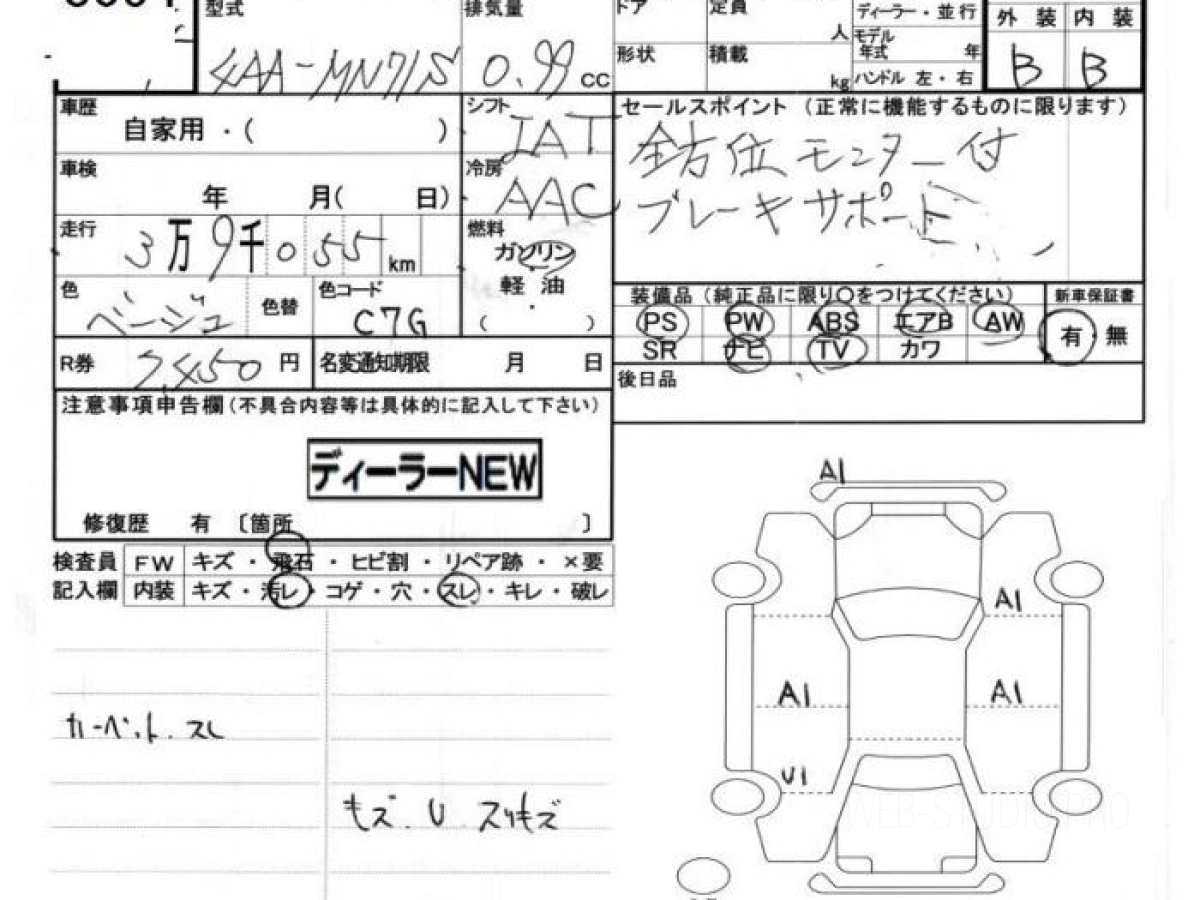 型式
排気量
ドア
定員
人
ディーラー・並行
モデル年式 年
外装 内装
4AA-MN71S
0.99 CC
形状
積載
kg
ハンドル 左・右
B B
車歴
自家用・( )
シフト
IAT
セールスポイント (正常に機能するものに限ります)
全方位モニター付
ブレーキサポート
車検
年 月( 日)
冷房
AAC
走行
3万9千055km
燃料
ガソリン
軽油
・
( )
色
ベージュ
色替
色コード
C7G
装備品 (純正品に限り○をつけてください)
新車保証書
PS PW ABS エアB AW
SR ナビ TV カワ
有・無
R券
7,450円
名変通知期限 月 日
後日品
注意事項申告欄(不具合内容等は具体的に記入して下さい)
ディーラーNEW
修復歴 有 〔箇所 〕
検査員
記入欄
FW キズ・飛石・ヒビ割・リペア跡・×要
内装 キズ・汚レ・コゲ・穴・スレ・キレ・破レ
カーペット.スレ
キズ.U.スリキズ
A1
A1
A1
A1
U1
WEB-STUDIO.PRO